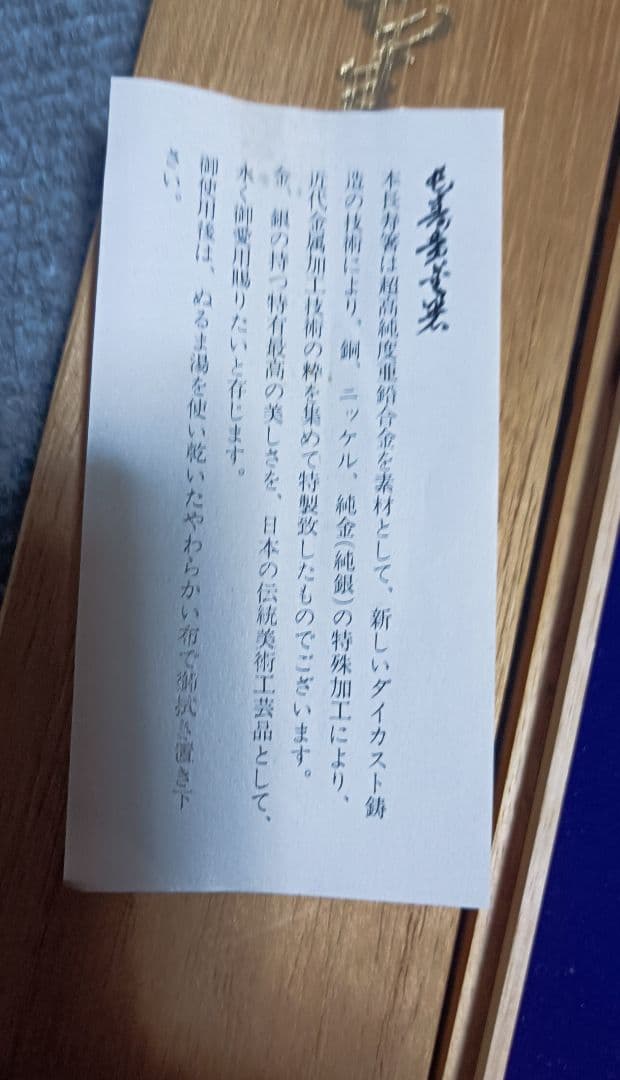 本長寿箸は超高純度亜鉛合金を素材として、新しいダイカスト鋳
造の技術により、銅、ニッケル、純金(純銀)の特殊加工により、
近代金属加工技術の粋を集めて特製致したものでございます。
金、銀の持つ特有最高の美しさを、日本の伝統美術工芸品として、
永く御愛用賜りたいと存じます。
御使用後は、ぬるま湯を使い乾いたやわらかい布で御拭き置き下
さい。